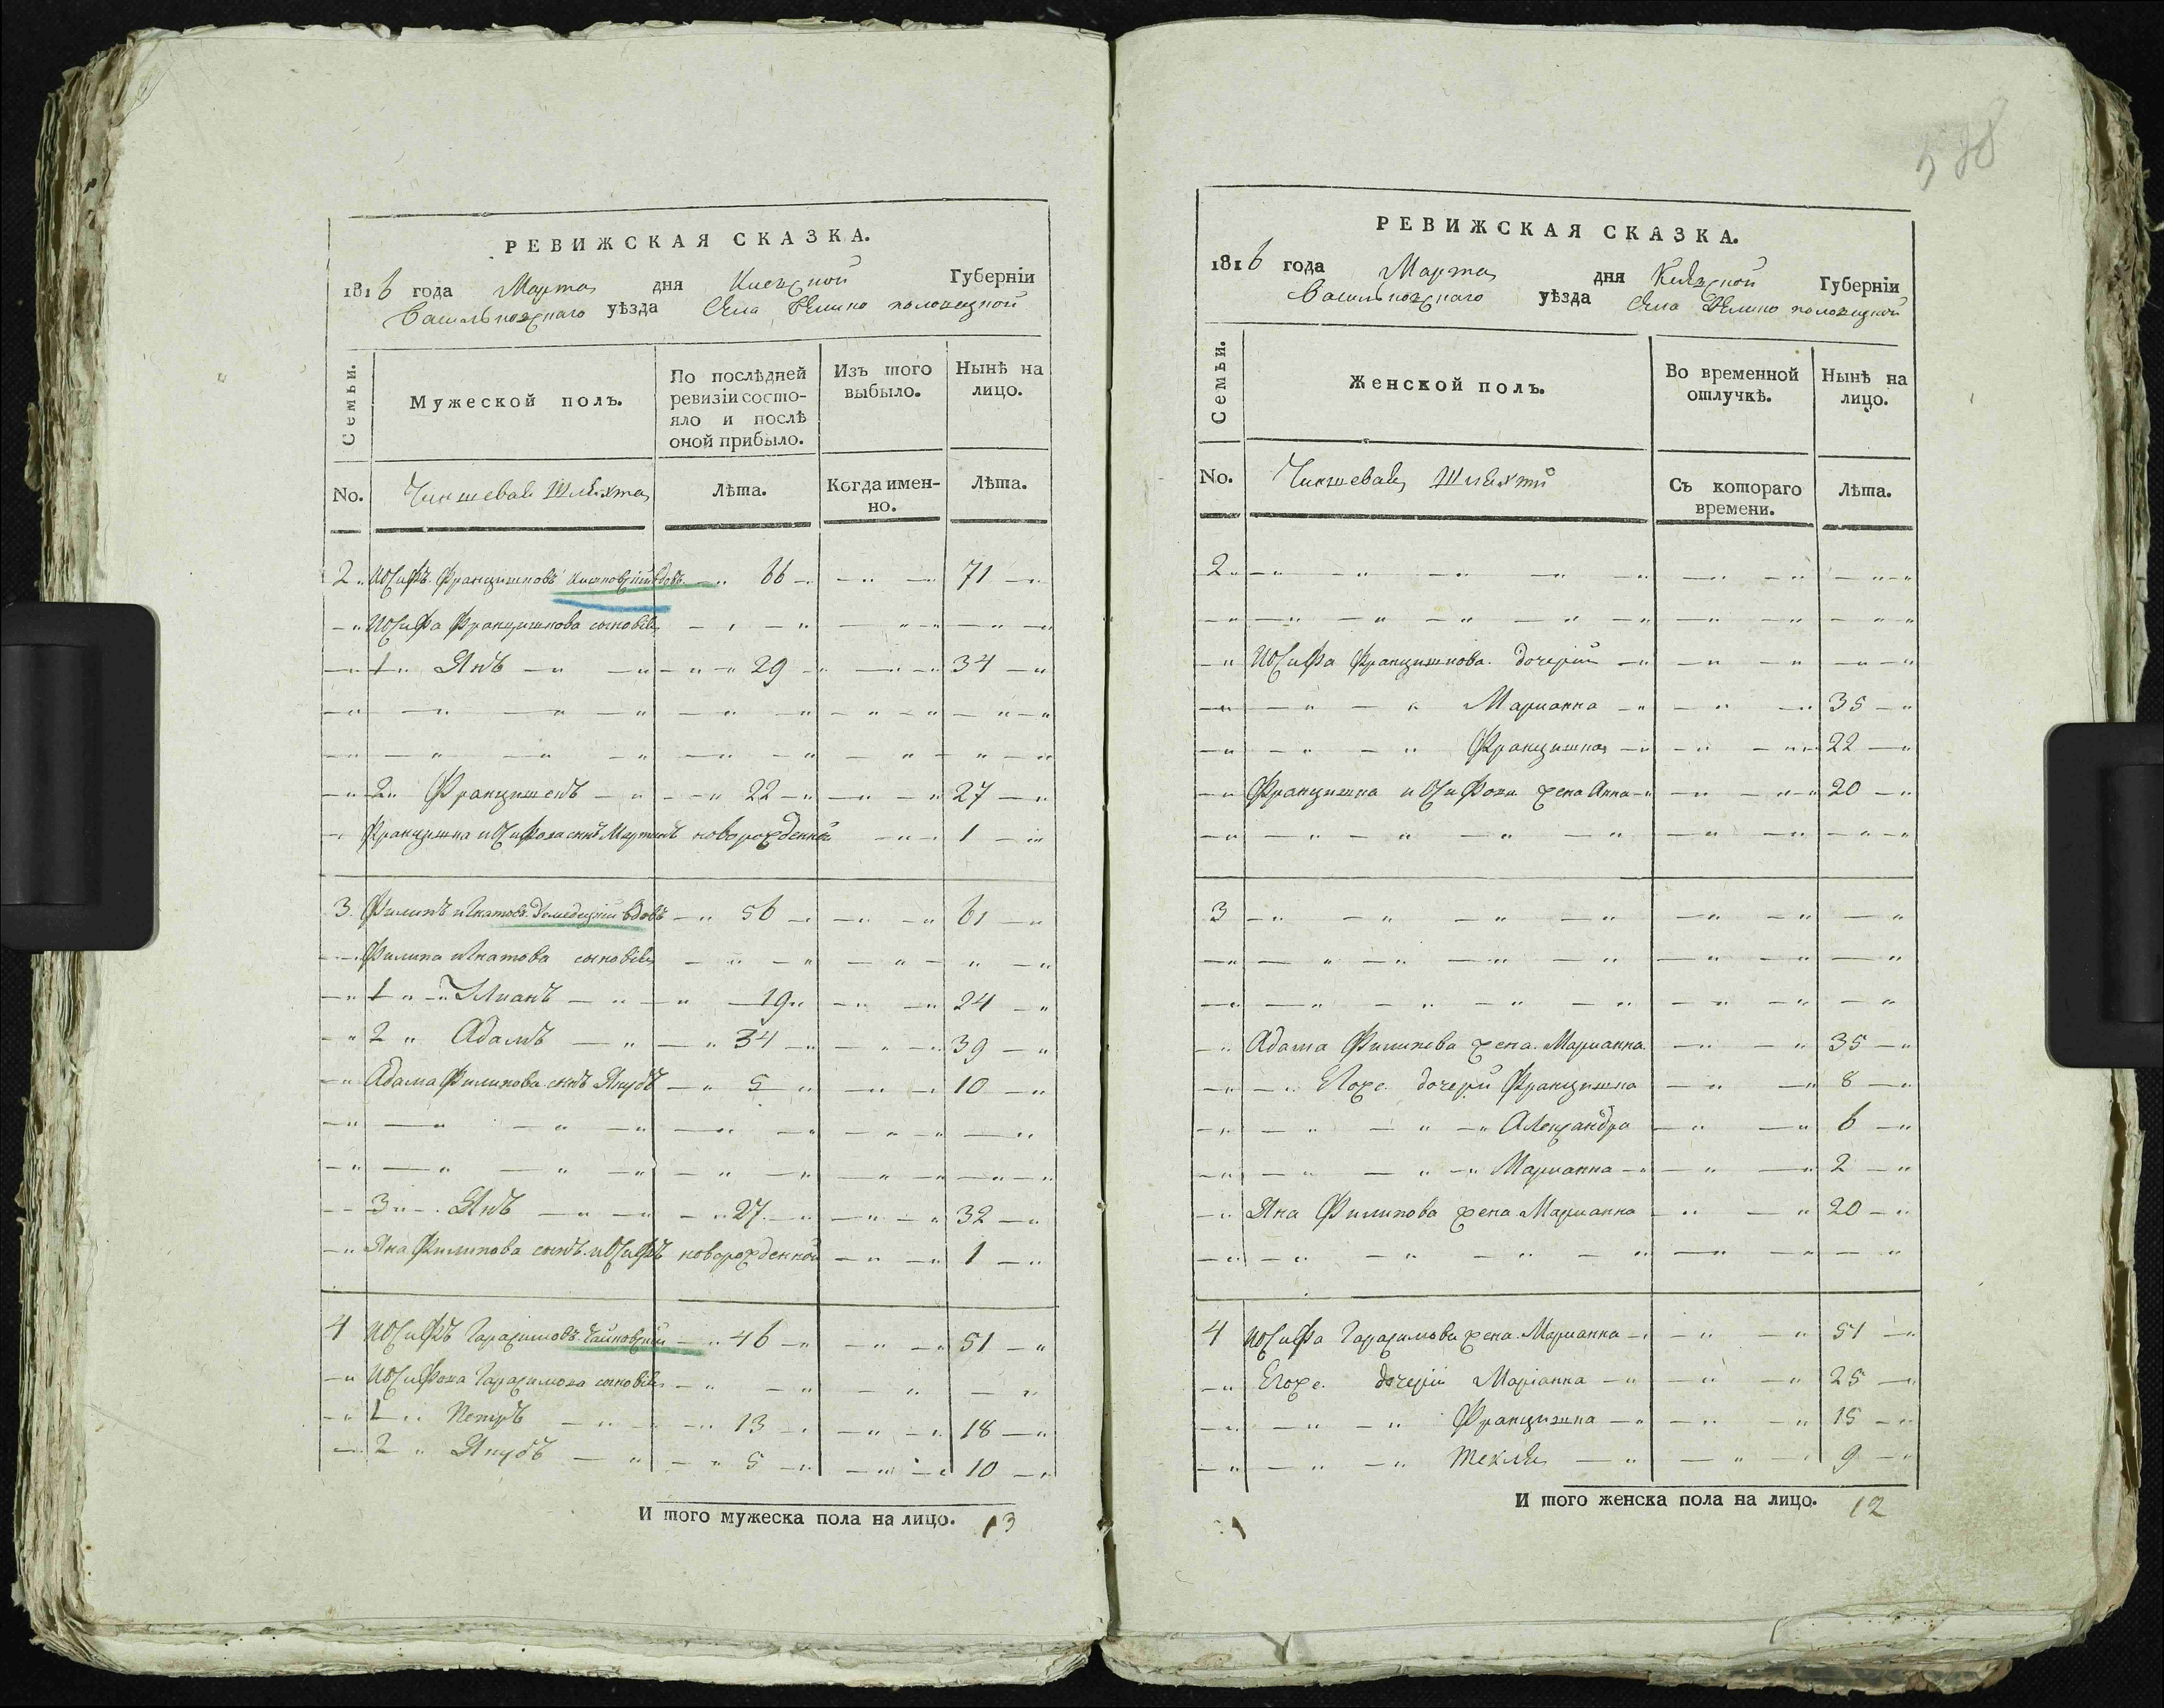 588
РЕВИЖСКАЯ СКАЗКА.
1816 года Марта дня Киевской Губерніи
Васильковскаго уѣзда Села Ѣлино половецкой
Семьи.
Мужеской полъ.
По послѣдней ревизіи состояло и послѣ оной прибыло.
Изъ того выбыло.
Нынѣ на лицо.
No. Чиншевая Шляхта Лѣта. Когда именно. Лѣта.
2 Иосифъ Францишковъ вдовъ 66 71
Иосифа Францишкова сыновья
1 Янъ 29 34
2 Францишекъ 22 27
Францишка Иосифова сынъ Мартинъ новорожденной 1
3 Филипъ Игнатовъ вдовъ 56 61
Филипа Игнатова сыновья
1 19 24
2 Адамъ 34 39
Адама Филипова сынъ Якубъ 5 10
3 Янъ 27 32
Яна Филипова сынъ Иосифъ новорожденной 1
4 Иосифъ Гаразимовъ Чайковскій 46 51
Иосифова Гаразимова сыновья
1 Петръ 13 18
2 Якубъ 5 10
И того мужеска пола на лицо. 13
РЕВИЖСКАЯ СКАЗКА.
1816 года Марта дня Киевской Губерніи
Васильковскаго уѣзда Села Ѣлино половецкой
Семьи.
Женской полъ.
Во временной отлучкѣ.
Нынѣ на лицо.
No. Чиншевая Шляхта Съ котораго времени. Лѣта.
2
Иосифа Францишкова дочери
Марианна 35
Францишка 22
Францишка Иосифова жена Анна 20
3
Адама Филипова жена Марианна 35
Егоже дочери Францишка 8
Александра 6
Марианна 2
Яна Филипова жена Марианна 20
4 Иосифа Гаразимова жена Марианна 51
Егоже дочери Маріанна 25
Францишка 15
Текля 9
И того женска пола на лицо. 12